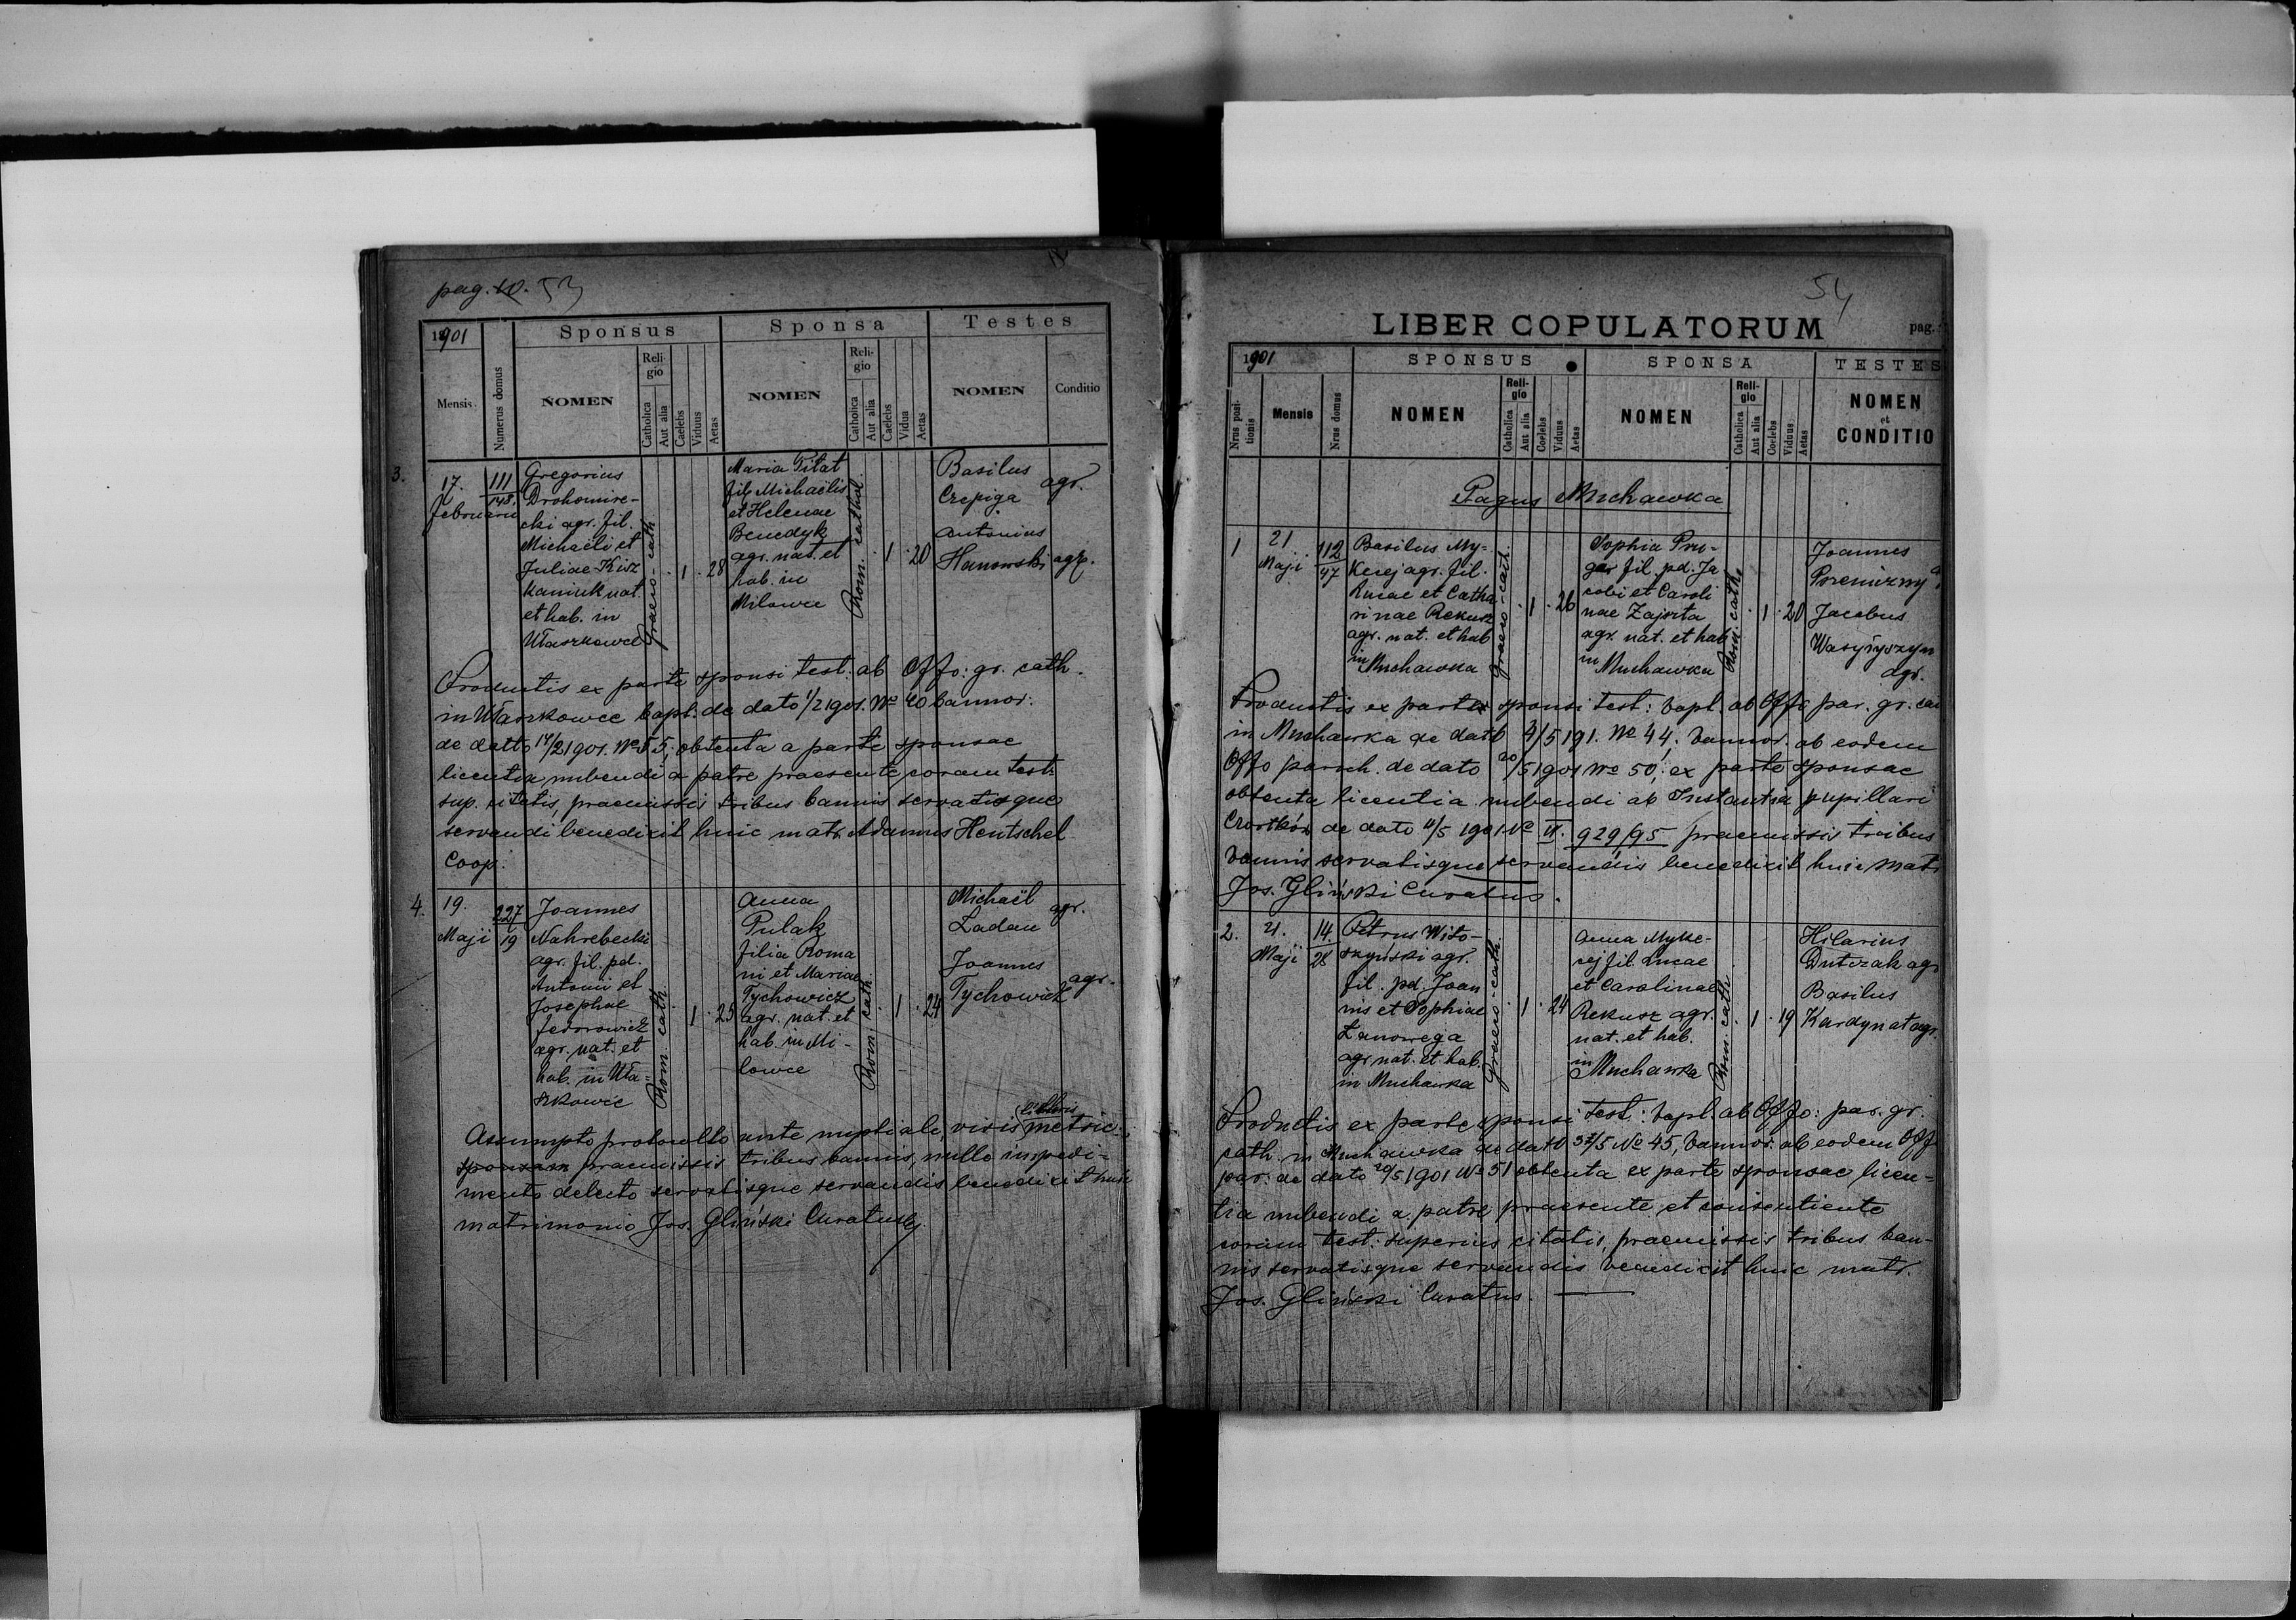 pag. 10. 53
1901
Sponsus
Sponsa
Testes
Mensis.
Numerus domus
NOMEN
Religio
Catholica
Aut alia
Caelebs
Viduus
Aetas
NOMEN
Religio
Catholica
Aut alia
Caelebs
Vidua
Aetas
NOMEN
Conditio
3.
17.
Februarii
111
148
Gregorius
Drohomire-
cki agr. fil.
Michaëli et
Juliae Kisz
kaniuk nat.
et hab. in
Ułaszkowce
Graeco-cath
1
28
Maria Pitat
fil. Michaëlis
et Helenae
Benedyk
agr. nat. et
hab. in
Milowce
Rom. cathol.
1
20
Basilus
Czepiga
agr.
Antonius
Hanowski agr.
Productis ex parte sponsi test. ab Offo: gr. cath.
in Ułaszkowce bapt. de dato 1/2 1901. No 40 bannor.
de datto 17/2 1901. No 55, obtenta a parte sponsae
licentia nubendi a patre praesente coram test.
sup. citatis, praemissis tribus bannis servatisque
servandi benedixit huic matr. Adamus Hentschel
Coop.
4.
19.
Maji
227
19
Joannes
Nahrebecki
agr. fil. pd.
Antonii et
Josephae
Fedorowicz
agr. nat. et
hab. in Uła-
szkowce
Rom. cath.
1
25
Anna
Pulak
filia Roma
ni et Mariae
Tychowicz
agr. nat. et
hab. in Mi-
lowce
Rom. cath.
1
24
Michaël
Ladan
agr.
Joannes
Tychowicz
agr.
Assumpto protocollo ante nuptiale, visis libris metric.
sponsam praemissis tribus bannis, nullo impedi-
mento detecto servatisque servandis benedixit huic
matrimonio Jos. Gliński Curatus
54
LIBER COPULATORUM
pag.
1901
SPONSUS
SPONSA
TESTES
Nrus positionis
Mensis
Nrus domus
NOMEN
Religio
Catholica
Aut alia
Coelebs
Viduus
Aetas
NOMEN
Religio
Catholica
Aut alia
Coelebs
Viduus
Aetas
NOMEN
et
CONDITIO
Pagus Muchawka
1
21
Maji
112
47
Basilus My-
kciej agr. fil.
Lucae et Catha
rinae Rekusz
agr. nat. et hab
in Muchawka
Graeco-cath.
1
26
Sophia Pru-
gar fil. pd. Ja
cobi et Caroli
nae Zajota
agr. nat. et hab
in Muchawka
Rom. cath.
1
20
Joannes
Przemirzny
Jacobus
Wasylyszyn
agr.
Productis ex parte sponsi test: bapt. ab Offo par. gr. cat
in Muchawka de dato 9/5 191. No 44. bannor. ab eodem
Offo paroch. de dato 20/5 1901 No 50, ex parte sponsae
obtenta licentia nubendi ab Instantia pupillari
Czortków de dato 11/5 1901 No VI. 929/95 praemissis tribus
bannis servatisque servandis benedixit huic matr
Jos. Gliński Curatus.
2.
21.
Maji
14
28
Petrus Wito-
szyński agr.
fil. pd. Joan
nis et Sophiae
Lanowega
agr nat. et hab.
in Muchawka
Graeco-cath.
1
24
Anna Myke-
cej fil. Lucae
et Carolinae
Rekusz agr.
nat. et hab.
in Muchawka
Rom. cath
1
19
Hilarius
Dutczak agr
Basilus
Kardynat agr.
Productis ex parte sponsi test: bapt. ab Offo: par. gr.
cath. in Muchawka de dato /5 No 45, bannor. ab eodem Off
par. de dato 20/5 1901 No 51 obtenta ex parte sponsae licen-
tia nubendi a patre praesente et consentiente
coram test: superius citatis, praemissis tribus ban-
nis servatisque servandis benedixit huic matr.
Jos. Gliński Curatus.